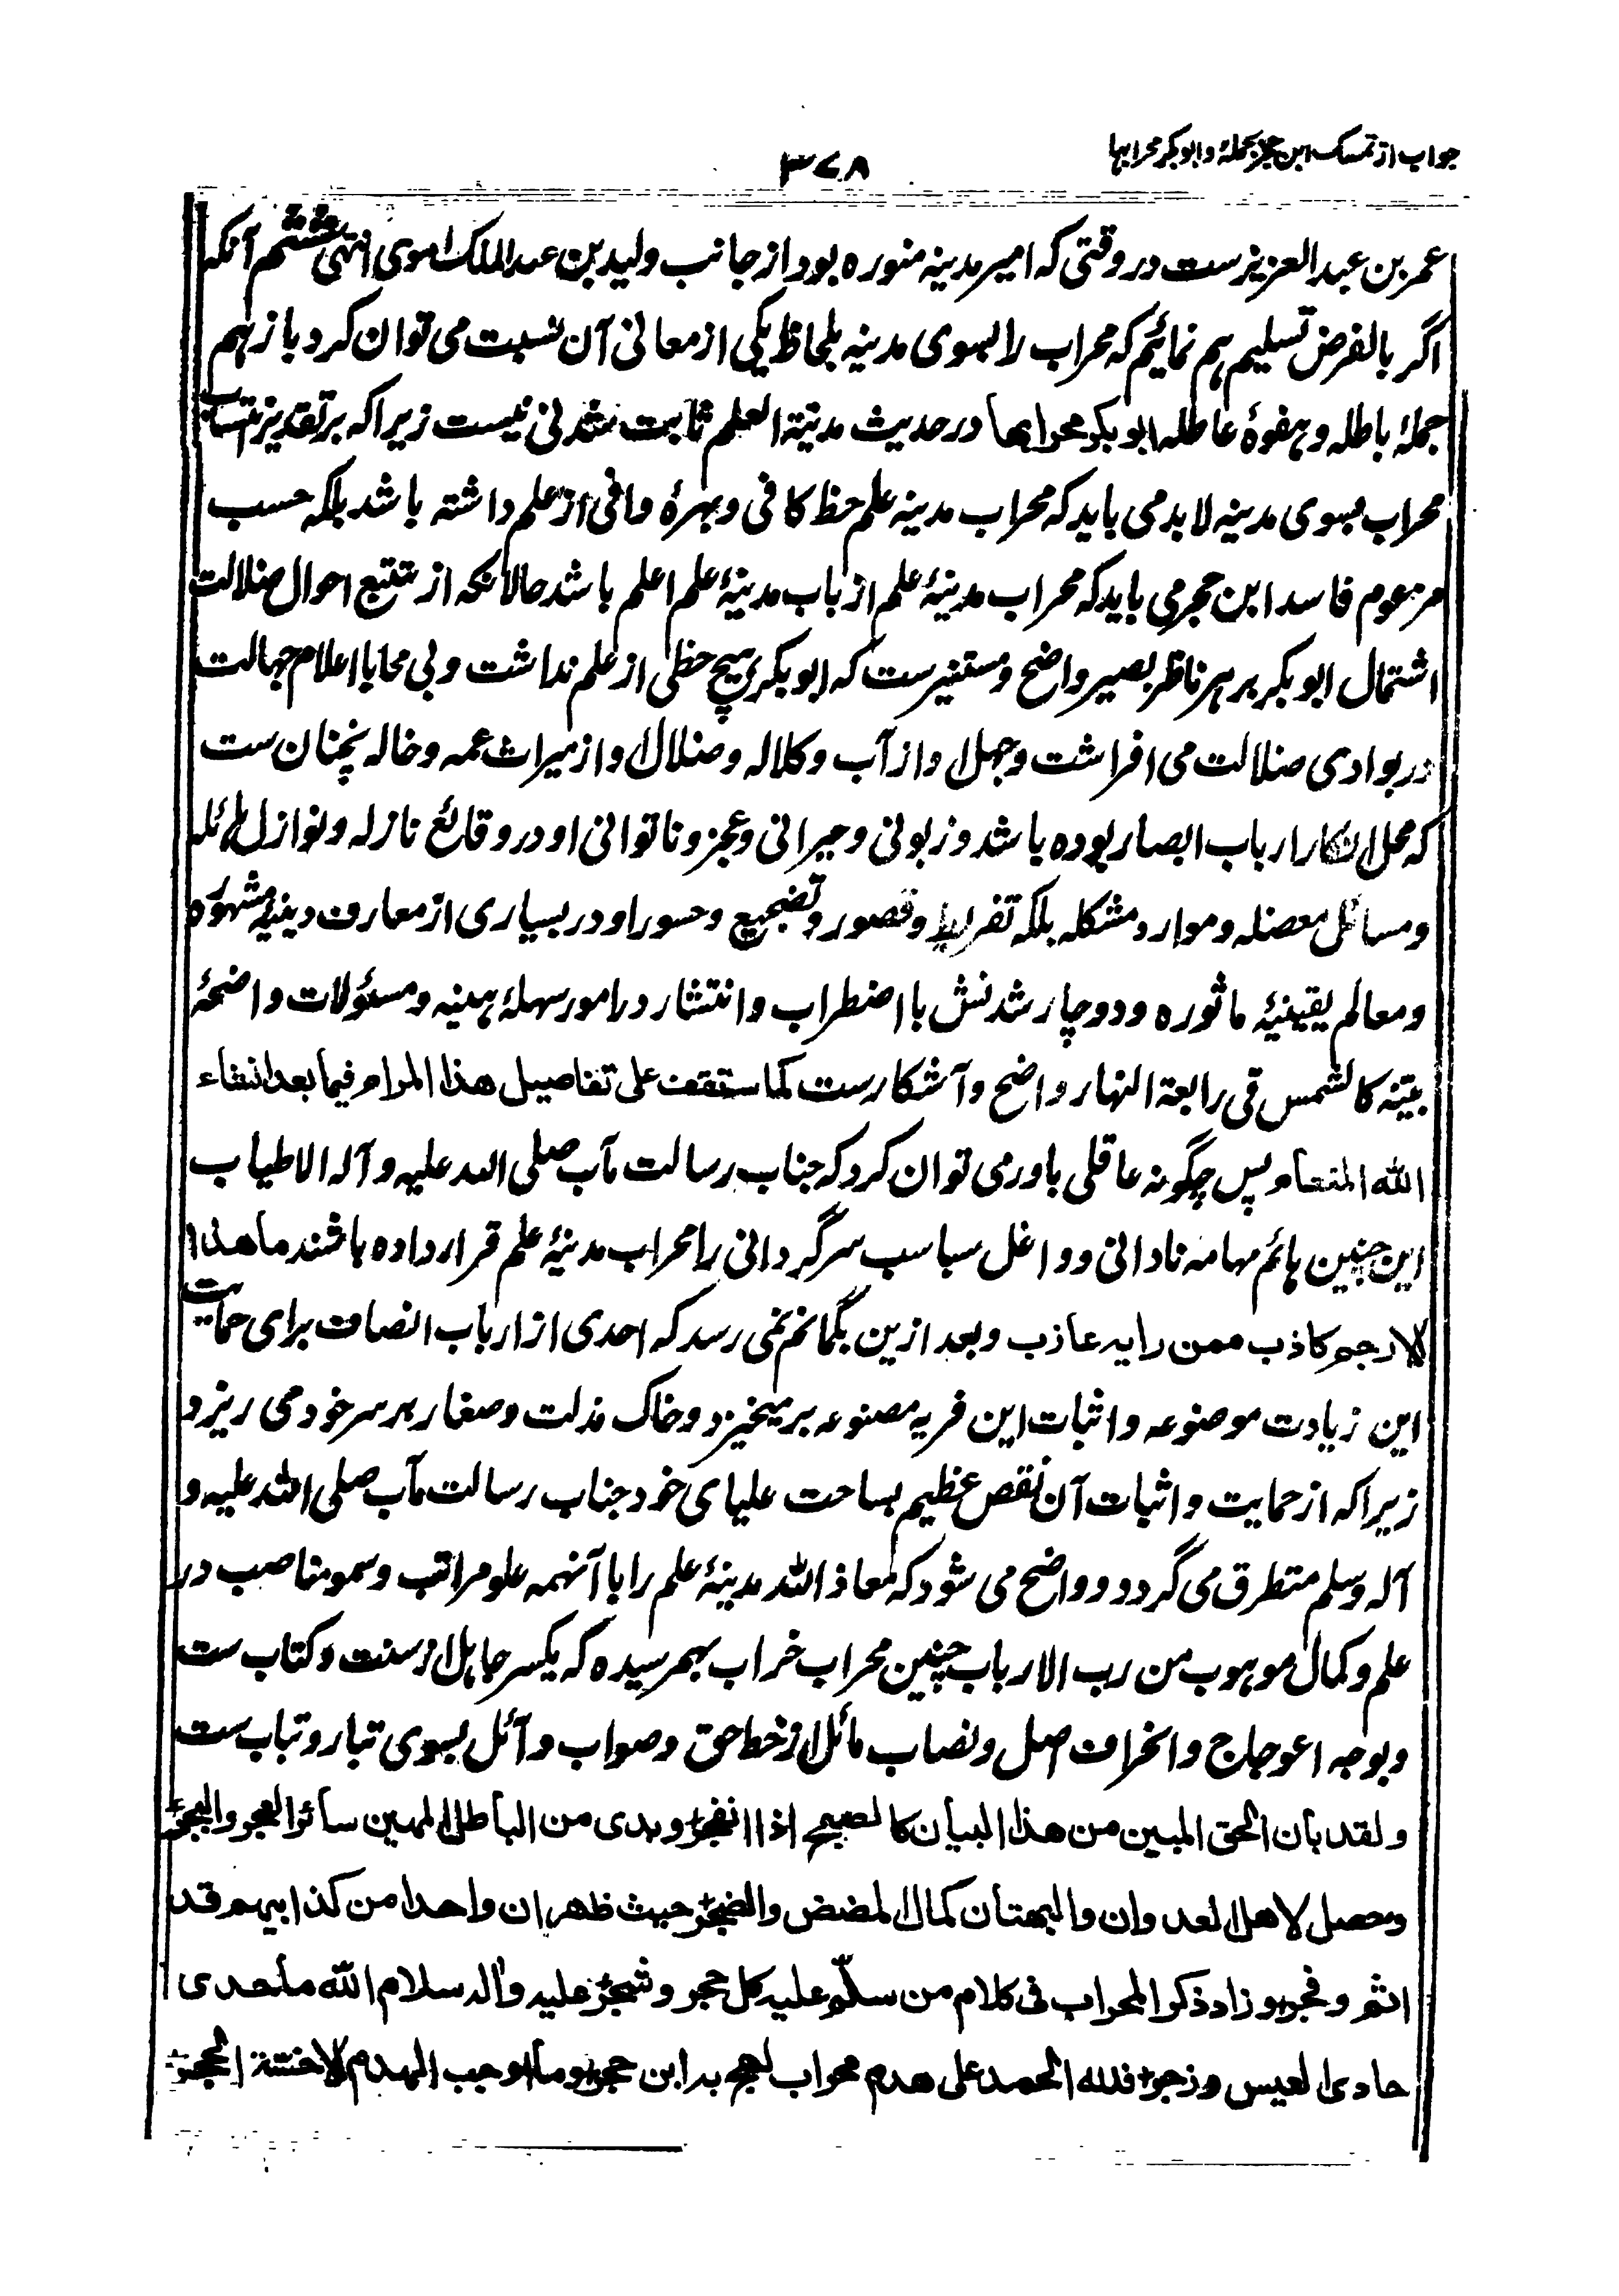 جواب از تمسک ابن حجر بجملهٔ و ابوبکر محرابها
۳۷۸
عمر بن عبد العزیزست در وقتی که امیر مدینه منوره بود از جانب ولید بن عبد الملک اموی انتهی ششم آنکه
اگر بالفرض تسلیم هم نمائیم که محراب را بسوی مدینه بلحاظ یکی از معانی آن نسبت می توان کرد باز هم
جملهٔ باطله و هفوهٔ عاطله ابوبکر محرابها در حدیث مدینة العلم ثابت شدنی نیست زیرا که بر تقدیر انتساب
محراب بسوی مدینه لابد می باید که محراب مدینه علم حظ کافی و بهرهٔ وافی از علم داشته باشد بلکه حسب
مزعوم فاسد ابن حجر می باید که محراب مدینهٔ علم از باب مدینهٔ علم اعلم باشد حالانکه از تتبع احوال ضلالت
اشتمال ابوبکر بر هر ناظر بصیر واضح و مستنیرست که ابوبکر هیچ حظی از علم نداشت و بی محابا اعلام جهالت
در بوادی ضلالت می افراشت و جهل او از آب و کلاله و ضلال او از میراث عمه و خاله نچنان ست
که محل انکار ارباب ابصار بوده باشد و زبونی و حیرانی و عجز و ناتوانی او در وقائع نازله و نوازل هائله
و مسائل معضله و موارد مشکله بلکه تفریط و قصور و تضجیع و حسور او در بسیاری از معارف دینیهٔ مشهوره
و معالم یقینیهٔ ماثوره و دوچار شدنش با اضطراب و انتشار در امور سهلهٔ هینه و مسئولات واضحهٔ
بینه کالشمس فی رابعة النهار واضح و آشکارست کما ستقف علی تفاصیل هذا المرام فیما بعد انشاء
الله المنعام پس چگونه عاقلی باور می توان کرد که جناب رسالت مآب صلی الله علیه و آله الاطیاب
این چنین هائم مهامه نادانی و واغل سباسب سرگردانی را محراب مدینهٔ علم قرار داده باشند ما هذا
الا رجم کاذب ممن رایه عاذب و بعد ازین بگمانم نمی رسد که احدی از ارباب انصاف برای حمایت
این زیادت موضوعه و اثبات این فریه مصنوعه بر میخیزد و خاک مذلت و صغار بر سر خود می ریزد
زیرا که از حمایت و اثبات آن نقص عظیم بساحت علیای خود جناب رسالت مآب صلی الله علیه و
آله وسلم متطرق می گردد و واضح می شود که معاذ الله مدینهٔ علم را با آنهمه علو مراتب و سمو مناصب در
علم و کمال موهوب من رب الارباب چنین محراب خراب بهم رسیده که یکسر جاهل از سنت و کتاب ست
و بوجه اعوجاج و انحراف اصل و نصاب مائل از خط حق و صواب و آئل بسوی تبار و تباب ست
و لقد بان الحق المبین من هذا البیان کالصبح اذا انفجر و بدی من الباطل المهین سائر العجر و البجر
و حصل لاهل العدوان و البهتان کمال المضض و الضجر حیث ظهر ان واحدا من کذابیهم قد
اثم و فجر و زاد ذکر المحراب فی کلام من سلم علیه کل حجر و شجر علیه و آله سلام الله ما حدی
حادی العیس و زجر فلله الحمد علی هدم محراب لهج به ابن حجر و ما اوجب الهدم الا خشة الحجر